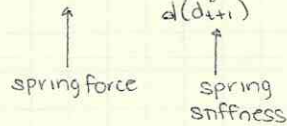 d(d_{t+1})
spring force spring
stiffness